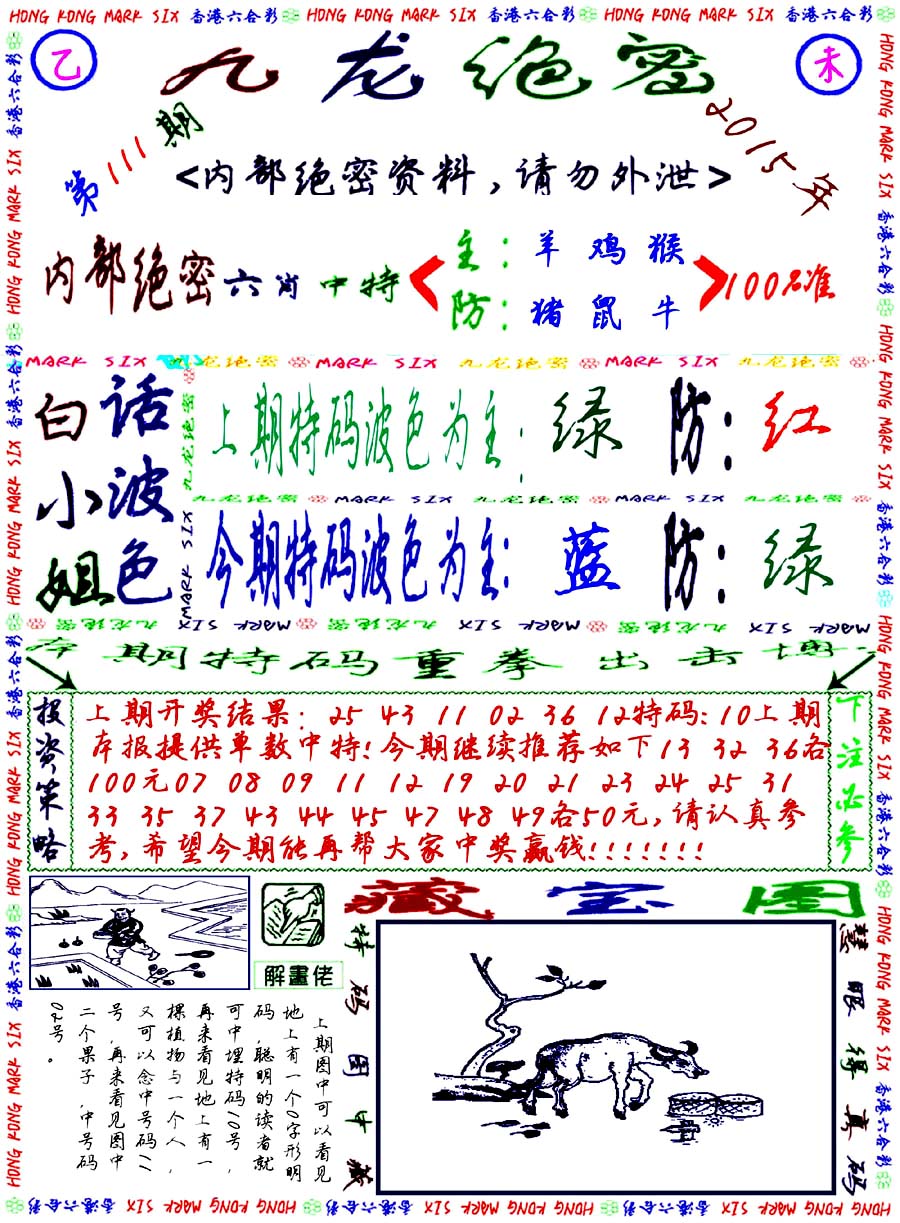 HONG KONG MARK SIX 香港六合彩 HONG KONG MARK SIX 香港六合彩 HONG KONG MARK SIX 香港六合彩
乙
九龙绝密
未
第111期
2015年
<内部绝密资料,请勿外泄>
内部绝密六肖中特
主:羊鸡猴
防:猪鼠牛
100%准
MARK SIX 九龙绝密 MARK SIX 九龙绝密 MARK SIX 九龙绝密
白话
小波
姐色
九龙绝密
MARK SIX
上期特码波色为主:绿 防:红
九龙绝密 MARK SIX 九龙绝密 MARK SIX 九龙绝密
今期特码波色为主:蓝 防:绿
九龙绝密 MARK SIX 九龙绝密 MARK SIX 九龙绝密 MARK SIX
本期特码重拳出击博
投资策略
上期开奖结果:25 43 11 02 36 12特码:10上期
本报提供单数中特!今期继续推荐如下13 32 36各
100元07 08 09 11 12 19 20 21 23 24 25 31
33 35 37 43 44 45 47 48 49各50元,请认真参
考,希望今期能再帮大家中奖赢钱!!!!!!!
下注必参
解畫佬
藏宝图
上期图中可以看见
地上有一个0字形明
码,聪明的读者就
可中埋特码10号,
再来看见地上有一
棵植物与一个人,
又可以念中号码11
号,再来看见图中
二个果子,中号码
02号。
特码图中藏
慧眼得真码
HONG KONG MARK SIX 香港六合彩 HONG KONG MARK SIX 香港六合彩 HONG KONG MARK SIX 香港六合彩